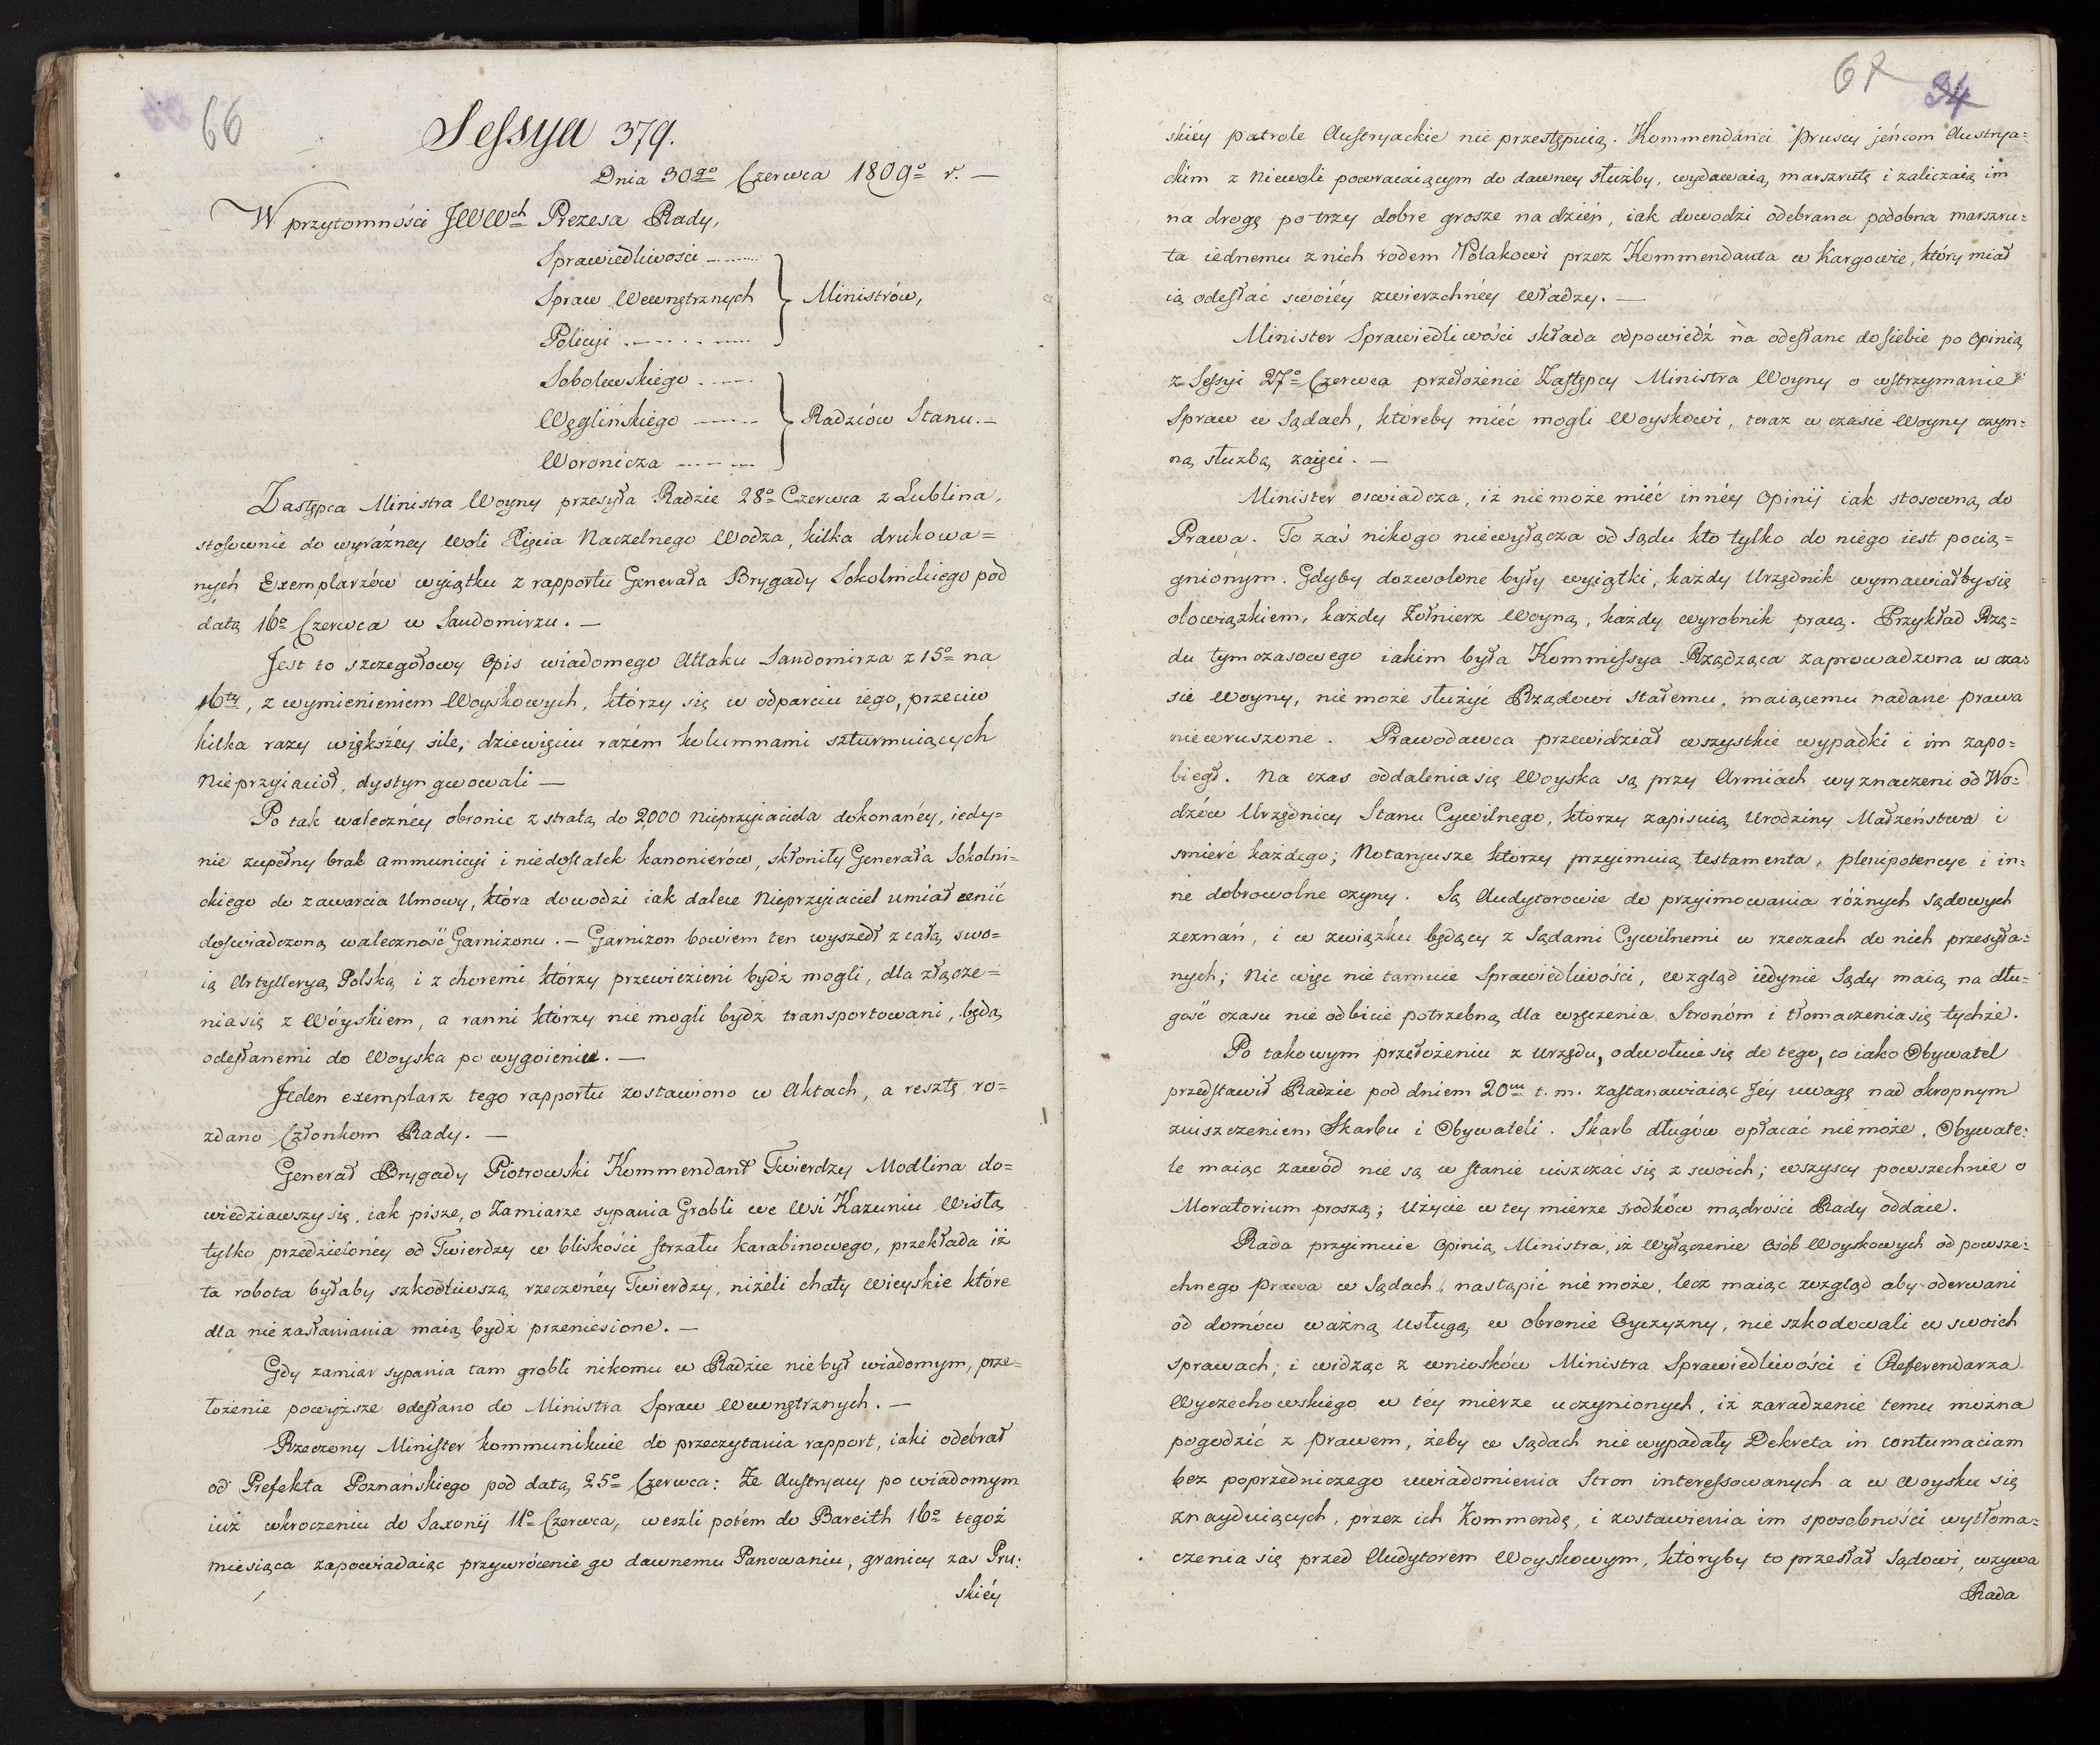 66
Sessya 379.
Dnia 30go Czerwca 1809o r. —
W przytomności JWWch Prezesa Rady,
Sprawiedliwości ........
Spraw Wewnętrznych } Ministrów,
Policyi ........
Sobolewskiego ......
Węglińskiego ...... } Radziów Stanu. —
Woronicza ......
Zastępca Ministra Woyny przesyła Radzie 28o Czerwca z Lublina,
stosownie do wyraźney woli Xięcia Naczelnego Wodza, kilka drukowa=
nych Exemplarzów wyiątku z rapportu Generała Brygady Sokolnickiego pod
datą 16o Czerwca w Sandomirzu. —
Jest to szczegołowy Opis wiadomego Attaku Sandomirza z 15o na
16ty, z wymienieniem Woyskowych, którzy się w odparciu iego, przeciw
kilka razy większéy sile, dziewięciu razém kolumnami szturmuiących
Nieprzyiaciół, dystyngwowali —
Po tak walecznéy obronie z stratą do 2000 Nieprzyiaciela dokonanéy, iedy=
nie zupełny brak ammunicyi i niedostatek kanonierów, skłoniły Generała Sokolni=
ckiego do zawarcia Umowy, która dowodzi iak dalece Nieprzyiaciel umiał cenić
doświadczoną waleczność Garnizonu. — Garnizon bowiem ten wyszedł z całą swo=
ią Artylleryą Polską i z choremi którzy przewiezieni bydź mogli, dla złącze=
nia się z Wóyskiem, a ranni którzy nie mogli bydź transportowani, będą
odesłanemi do Woyska po wygoieniu. —
Jeden exemplarz tego rapportu zostawiono w Aktach, a resztę ro=
zdano Członkom Rady. —
Generał Brygady Piotrowski Kommendant Twierdzy Modlina do=
wiedziawszy się, iak pisze, o Zamiarze sypania Grobli we Wsi Kazuniu Wisłą
tylko przedzielonéy od Twierdzy w bliskości strzału karabinowego, przekłada iż
ta robota byłaby szkodliwszą rzeczonéy Twierdzy, niżeli chaty wieyskie które
dla niezasłaniania maią bydź przeniesione. —
Gdy zamiar sypania tam grobli nikomu w Radzie nie był wiadomym, prze=
łożenie powyższe odesłano do Ministra Spraw Wewnętrznych. —
Rzeczony Minister kommunikuie do przeczytania rapport, iaki odebrał
od Prefekta Poznańskiego pod datą 25o Czerwca: Że Austryacy po wiadomym
iuż wkroczeniu do Saxonij 11o Czerwca, weszli potém do Bareith 16o tegoż
miesiąca zapowiadaiąc przywrócenie go dawnemu Panowaniu, granicy zas Pru:
skiéy
67 34
skiéy patrole Austryackie nie przestępuią. Kommendanci Pruscy jeńcom Austrya=
ckim z Niewoli powracaiącym do dawney służby, wydawaią marszrutę i zaliczaią im
na drogę po trzy dobre grosze na dzień, iak dowodzi odebrana podobna marszru=
ta iednemu z nich rodem Polakowi przez Kommendanta w Kargowie, który miał
ią odesłać swoiéy zwierzchnéy władzy. —
Minister Sprawiedliwości składa odpowiedź na odesłane do siebie po Opinią
z Sessyi 27o Czerwca przełożenie Zastępcy Ministra Woyny o wstrzymanie
Spraw w Sądach, któreby mieć mogli Woyskowi, teraz w czasie Woyny czyn=
ną służbą zaięci. —
Minister oswiadcza, iż nie może mieć innéy Opinij iak stosowną do
Prawa. To zaś nikogo nie wyłącza od Sądu kto tylko do niego iest pocią=
gnionym. Gdyby dozwolone były wyiątki, każdy Urzędnik wymawiałby się
obowiązkiem, każdy Żołnierz Woyną, każdy wyrobnik pracą. Przykład Rzą=
du tymczasowego iakim była Kommissya Rządząca zaprowadzona w cza=
sie Woyny, nie może służyć Rządowi Stałemu, maiącemu nadane prawa
niewzruszone. Prawodawca przewidział wszystkie wypadki i im zapo=
biegł. Na czas oddalenia się Woyska są przy Armiach wyznaczeni od Wo=
dzów Urzędnicy Stanu Cywilnego, którzy zapisuią Urodziny Małżeństwa i
smierć każdego; Notaryusze którzy przyimuią testamenta, plenipotencye i in=
ne dobrowolne czyny. Są Audytorowie do przyimowania różnych Sądowych
zeznań, i w związku będący z Sądami Cywilnemi w rzeczach do nich przesyła=
nych; Nic więc nie tamuie Sprawiedliwości, wzgląd iedynie Sądy maią na dłu=
gość czasu nie odbicie potrzebną dla wręczenia Stronóm i tłomaczenia się tychże.
Po takowym przełożeniu z urzędu, odwołuie się do tego, co iako Obywatel
przedstawił Radzie pod dniem 20m t. m. zastanawiaiąc Jéy uwagę nad okropnym
zniszczeniem Skarbu i Obywateli. Skarb długów opłacać nie może, Obywate=
le maiąc zawód nie są w stanie uiszczać się z swoich; wszyscy powszechnie o
Moratorium proszą; użycie w tey mierze srodków mądrości Rady oddaie.
Rada przyimuie Opinią Ministra, iż wyłączenie Osób Woyskowych od powsze=
chnego prawa w Sądach, nastąpić nie może, lecz maiąc wzgląd aby oderwani
od domów ważną usługą w obronie Oyczyzny, nie szkodowali w swoich
sprawach, i widząc z wniosków Ministra Sprawiedliwości i Referendarza
Wyczechowskiego w téy mierze uczynionych, iż zaradzenie temu można
pogodzić z prawem, żeby w Sądach nie wypadały Dekreta in contumaciam
bez poprzedniczego uwiadomienia Stron interessowanych a w Woysku się
znayduiących, przez ich Kommendę, i zostawienia im sposobności wytłoma=
czenia się przed Audytorem Woyskowym, któryby to przesłał Sądowi, wzywa
Rada